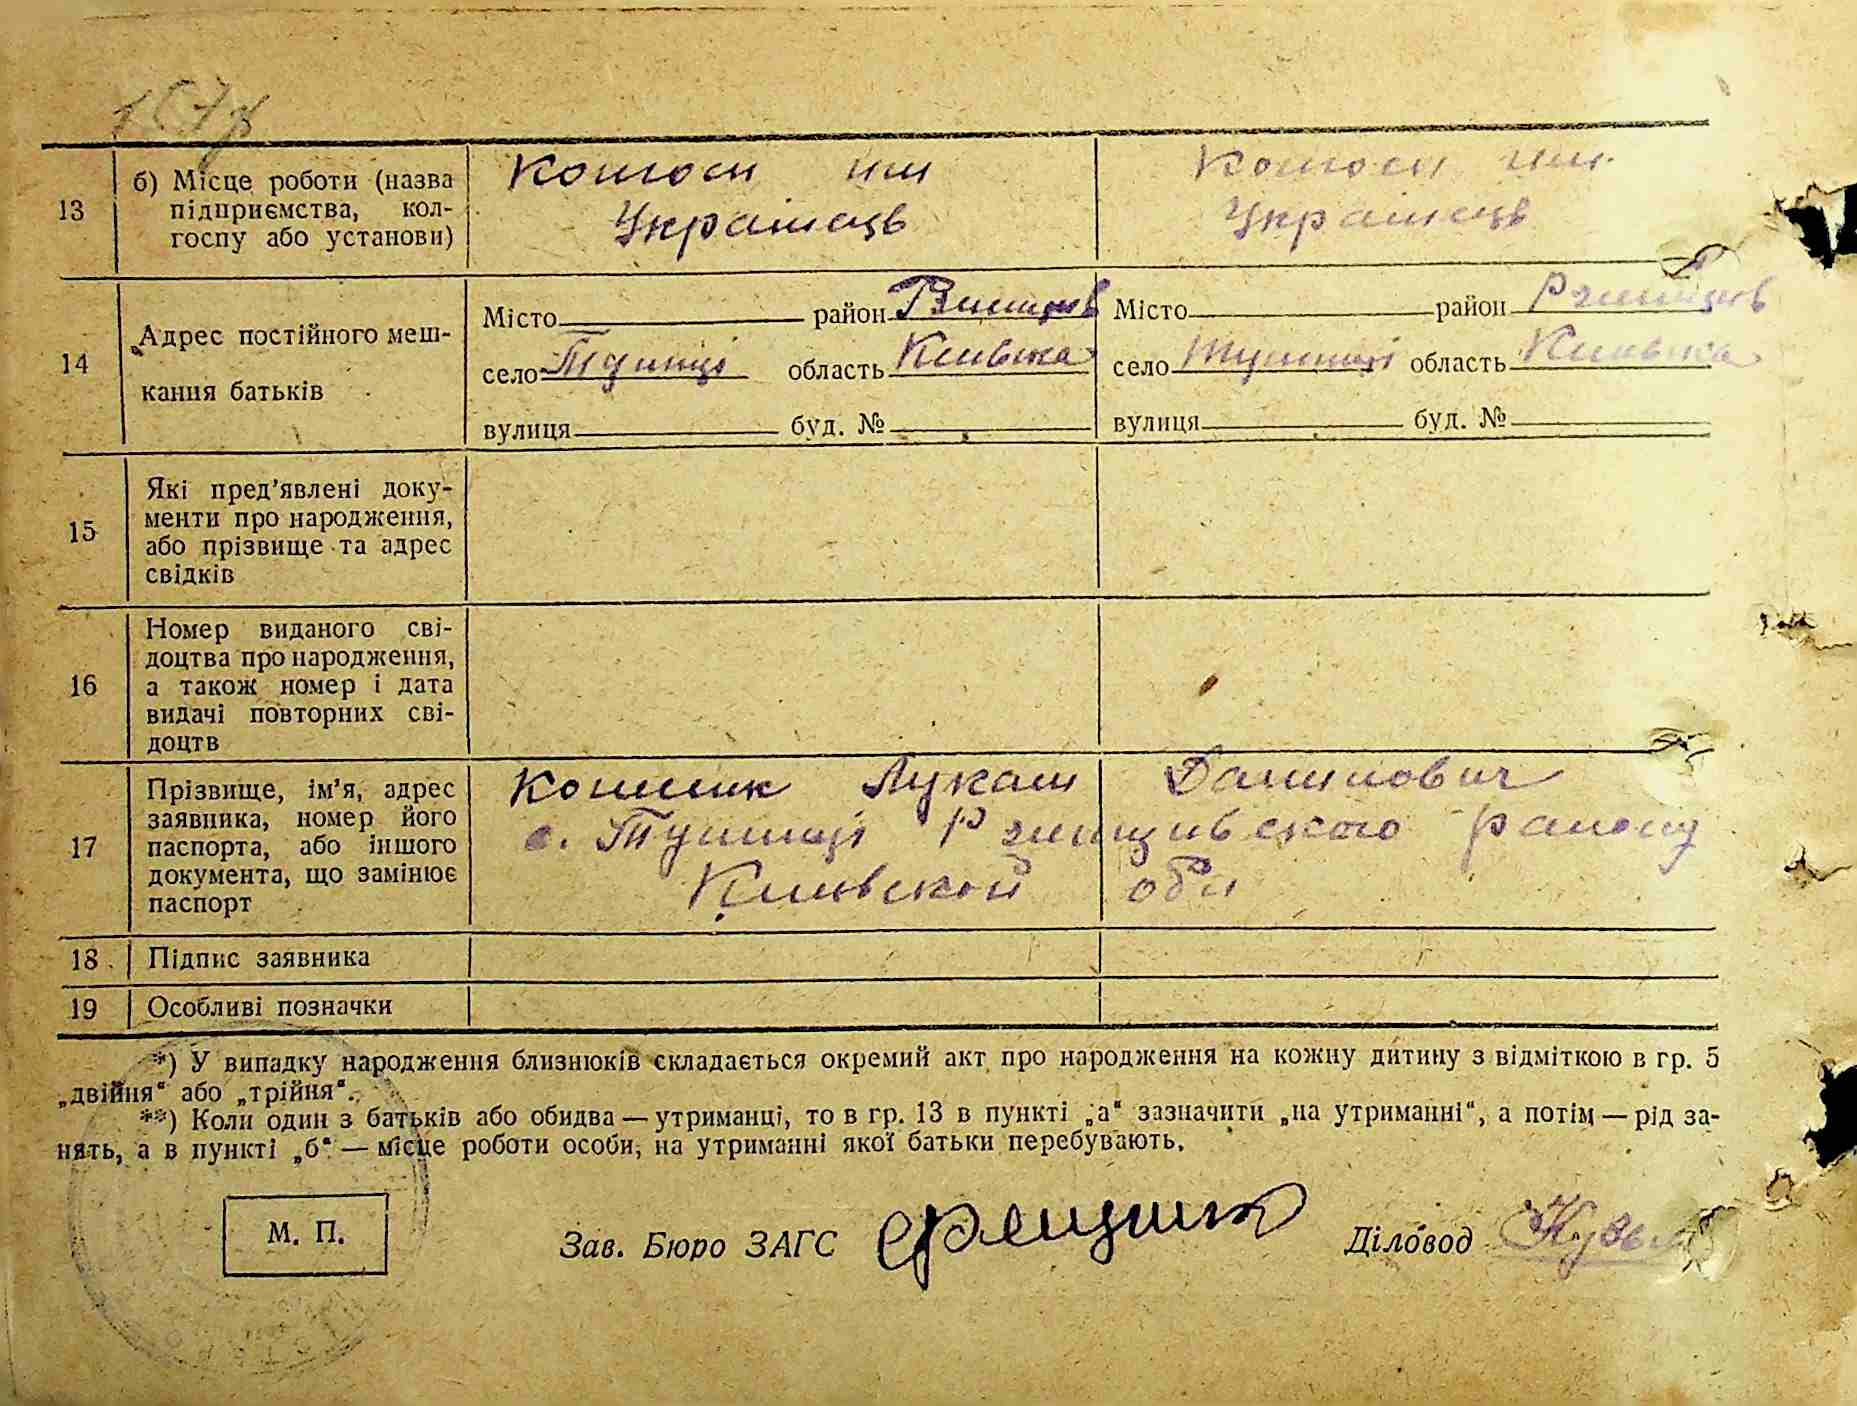 13
б) Місце роботи (назва
підприємства, кол-
госпу або установи)
Колгосп ім
Українців
Колгосп ім.
Українців
14
Адрес постійного меш-
кання батьків
Місто район Ржищів
село Тулинці область Київська
вулиця буд. №
Місто район Ржищів
село Тулинці область Київська
вулиця буд. №
15
Які пред'явлені доку-
менти про народження,
або прізвище та адрес
свідків
16
Номер виданого сві-
доцтва про народження,
а також номер і дата
видачі повторних сві-
доцтв
17
Прізвище, ім'я, адрес
заявника, номер його
паспорта, або іншого
документа, що замінює
паспорт
Лукаш Данилович
с. Тулинці Ржищивського району
Киівской обл
18 Підпис заявника
19 Особливі позначки
*) У випадку народження близнюків складається окремий акт про народження на кожну дитину з відміткою в гр. 5
„двійня“ або „трійня“.
**) Коли один з батьків або обидва — утриманці, то в гр. 13 в пункті „а“ зазначити „на утриманні“, а потім — рід за-
нять, а в пункті „б“ — місце роботи особи, на утриманні якої батьки перебувають.
М. П.
Зав. Бюро ЗАГС
Діловод